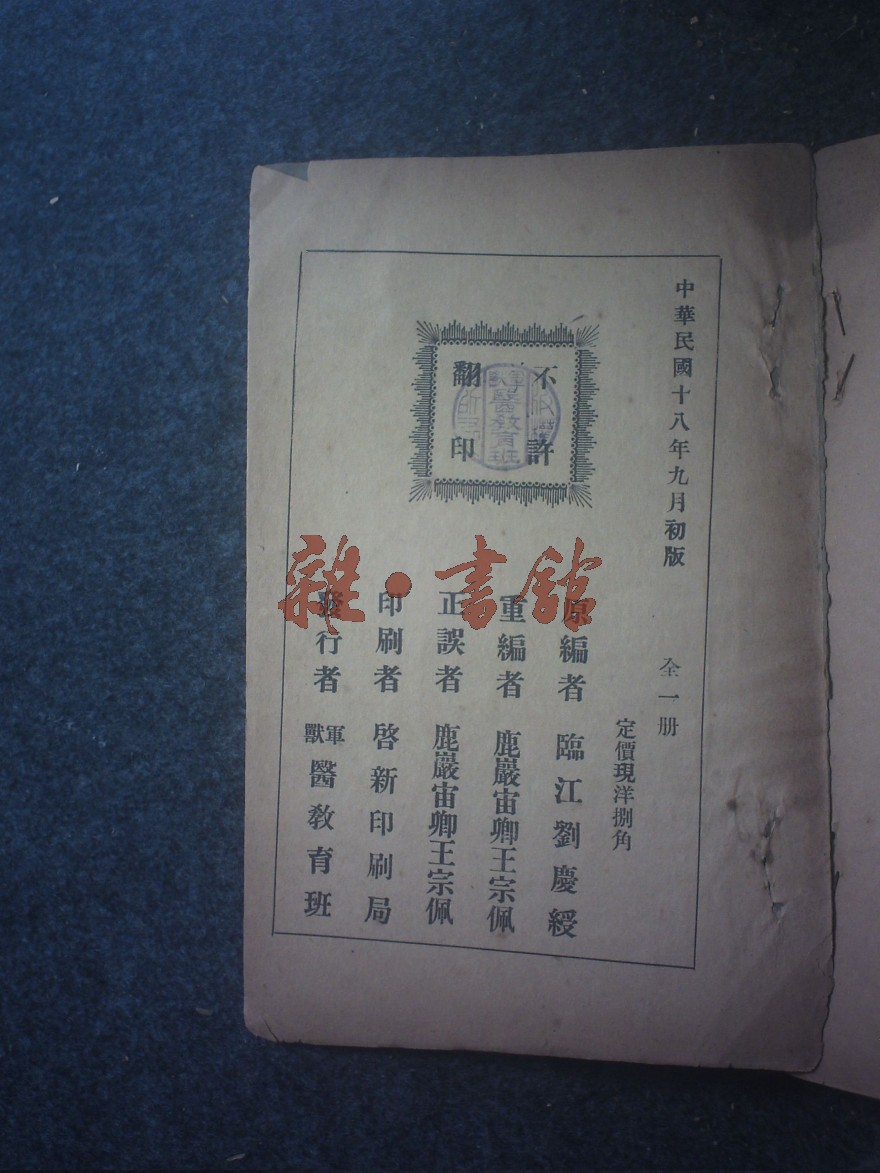 中華民國十八年九月初版
全一册
定價現洋捌角
原編者 臨江劉慶綬
重編者 鹿巖宙卿王宗佩
正誤者 鹿巖宙卿王宗佩
印刷者 啓新印刷局
發行者 軍獸醫教育班
不許
翻印
版權
軍獸醫教育班
所有
雜·書館